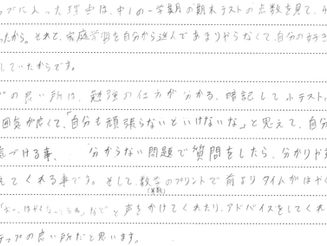 プに入った理由は、中1の一学期の期末テストの点数を見て、
ったから。それで、家庭学習を自分から進んであまりやらなくて、自分の好き
していたからです。
プの良い所は、勉強の仕方が分かる、暗記して小テスト
囲気が良くて、「自分も頑張らないといけないな」と思えて、自分
続ける事、 分からない問題で質問をしたら、分かりや
えてくれる事です。そして、数学のプリントで前よりタイムがはや
(英数)
」などと声をかけてくれたり、アドバイスをしてくれ
テップの良い所だと思います。